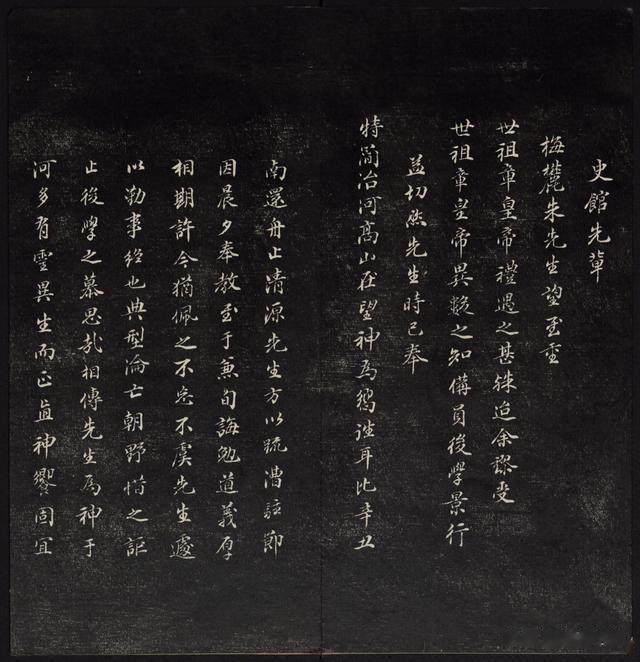 史館先輩
梅麓朱先生望至重
世祖章皇帝禮遇之甚殊迨余謬受
世祖章皇帝異數之知備員後學景行
益切然先生時已奉
特簡治河高山在望神為鶩馳耳比辛丑
南還舟止清源先生方以疏漕駐節
因晨夕奉教至于兼旬誨勉道義厚
相期許今猶佩之不忘不虞先生遽
以勤事終也典型淪亡朝野惜之詎
止後學之慕思哉相傳先生為神于
河多有靈異生而正直神饗固宜